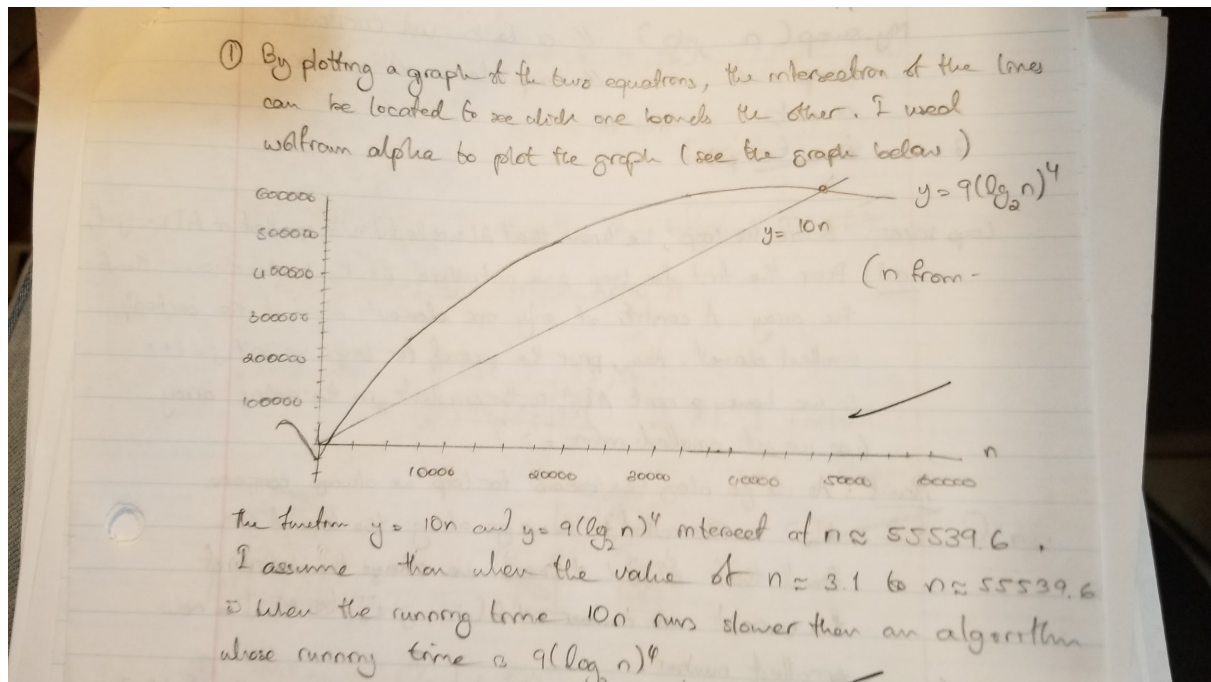 ① By plotting a graph of the two equations, the intersection of the lines
can be located to see which one bounds the other. I used
wolfram alpha to plot the graph (see the graph below)
y = 9(log₂n)⁴
600000
500000
y = 10n
400000
(n from -
300000
200000
100000
n
10000 20000 30000 40000 50000 60000
the function y = 10n and y = 9(lg₂n)⁴ intersect at n ≈ 55539.6 .
I assume than when the value of n ≈ 3.1 to n ≈ 55539.6
is when the running time 10n runs slower than an algorithm
whose running time is 9(log n)⁴